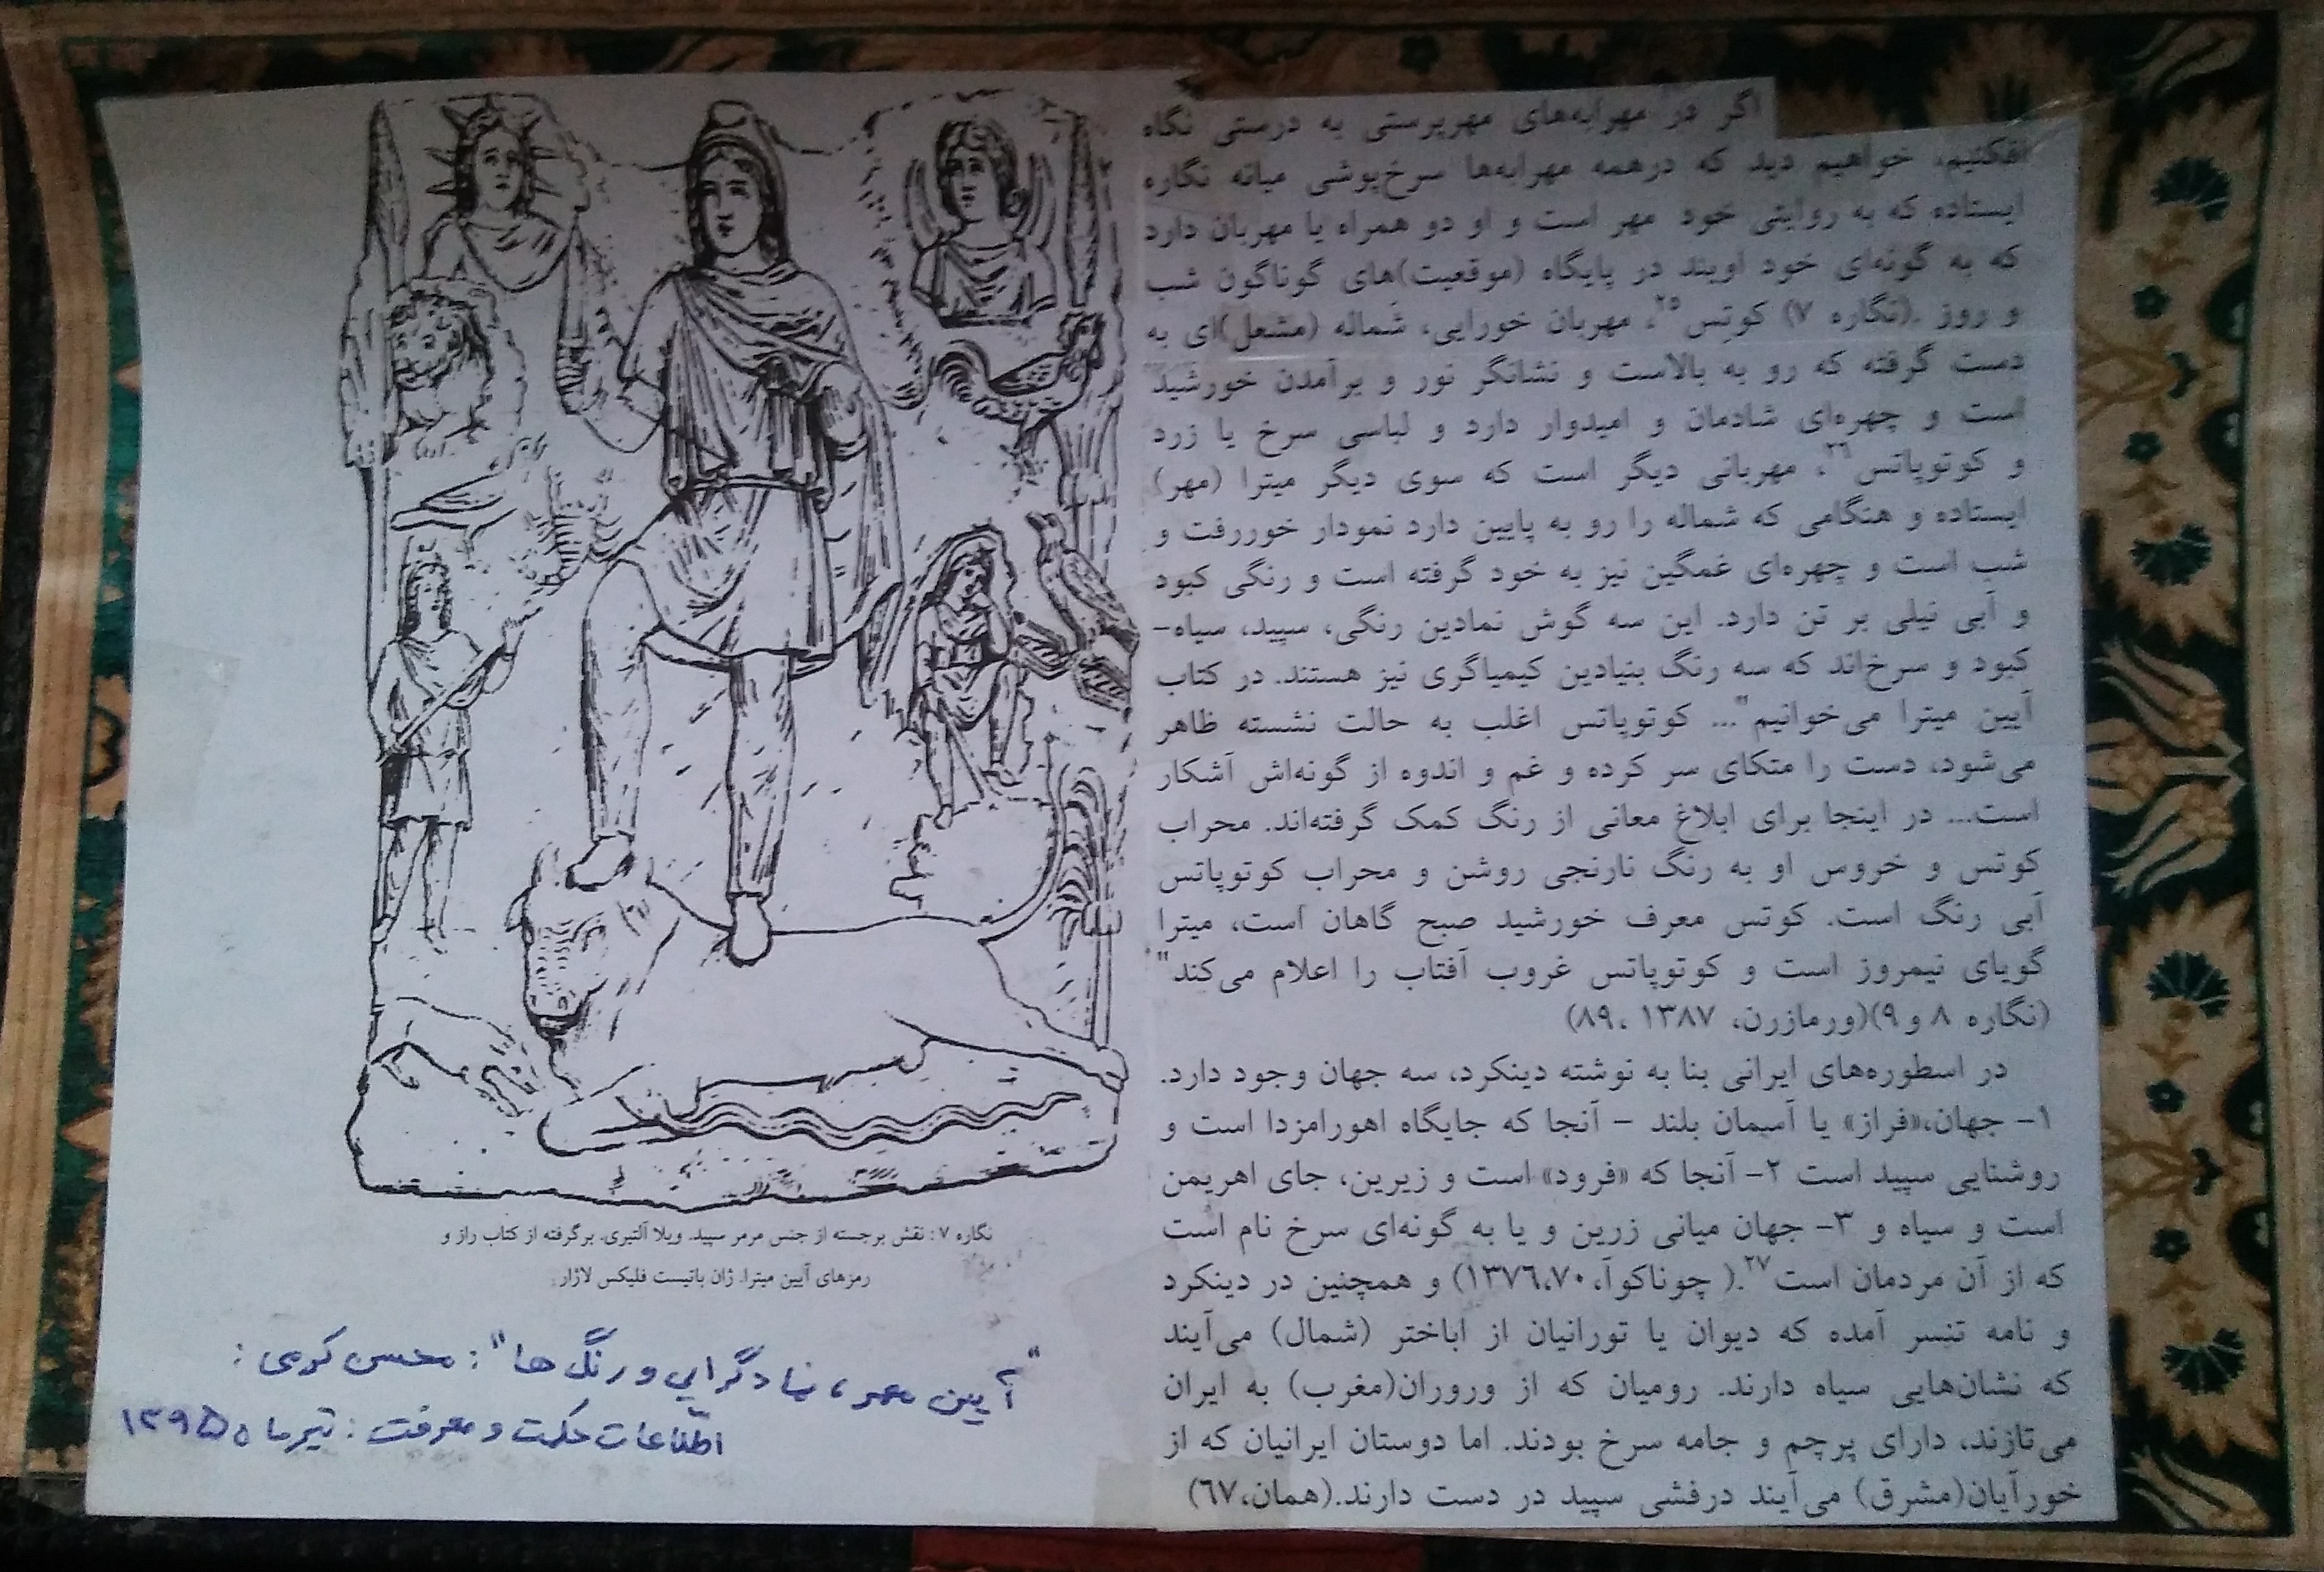 اگر در مهرابه‌های مهرپرستی به درستی نگاه
افکنیم، خواهیم دید که درهمه مهرابه‌ها سرخ‌پوشی میانه نگاره
ایستاده که به روایتی خود مهر است و او دو همراه یا مهربان دارد
که به گونه‌ای خود اویند در پایگاه (موقعیت)های گوناگون شب
و روز .(نگاره ۷) کوتس۲۵، مهربان خورایی، شماله (مشعل)ای به
دست گرفته که رو به بالاست و نشانگر نور و برآمدن خورشید
است و چهره‌ای شادمان و امیدوار دارد و لباسی سرخ یا زرد
و کوتوپاتس۲۶، مهربانی دیگر است که سوی دیگر میترا (مهر)
ایستاده و هنگامی که شماله را رو به پایین دارد نمودار خوررفت و
شب است و چهره‌ای غمگین نیز به خود گرفته است و رنگی کبود
و آبی نیلی بر تن دارد. این سه گوش نمادین رنگی، سپید، سیاه-
کبود و سرخ‌اند که سه رنگ بنیادین کیمیاگری نیز هستند. در کتاب
آیین میترا می‌خوانیم"... کوتوپاتس اغلب به حالت نشسته ظاهر
می‌شود، دست را متکای سر کرده و غم و اندوه از گونه‌اش آشکار
است... در اینجا برای ابلاغ معانی از رنگ کمک گرفته‌اند. محراب
کوتس و خروس او به رنگ نارنجی روشن و محراب کوتوپاتس
آبی رنگ است. کوتس معرف خورشید صبح گاهان است، میترا
گویای نیمروز است و کوتوپاتس غروب آفتاب را اعلام می‌کند"
(نگاره ۸ و ۹)(ورمازرن، ۱۳۸۷ ،۸۹)
در اسطوره‌های ایرانی بنا به نوشته دینکرد، سه جهان وجود دارد.
۱- جهان،«فراز» یا آسمان بلند - آنجا که جایگاه اهورامزدا است و
روشنایی سپید است ۲- آنجا که «فرود» است و زیرین، جای اهریمن
است و سیاه و ۳- جهان میانی زرین و یا به گونه‌ای سرخ نام است
که از آن مردمان است۲۷.( چوناکوآ، ۱۳۷۶،۷۰) و همچنین در دینکرد
و نامه تنسر آمده که دیوان یا تورانیان از اباختر (شمال) می‌آیند
که نشان‌هایی سیاه دارند. رومیان که از وروران(مغرب) به ایران
می‌تازند، دارای پرچم و جامه سرخ بودند. اما دوستان ایرانیان که از
خورآیان(مشرق) می‌آیند درفشی سپید در دست دارند.(همان،۶۷)
نگاره ۷: نقش برجسته از جنس مرمر سپید. ویلا آلتیری. برگرفته از کتاب راز و
رمزهای آیین میترا. ژان باتیست فلیکس لاژار.
"آیین مهر، نمادگرایی و رنگ ها": محسن کرمی:
اطلاعات حکمت و معرفت: تیرماه ۱۳۹۵